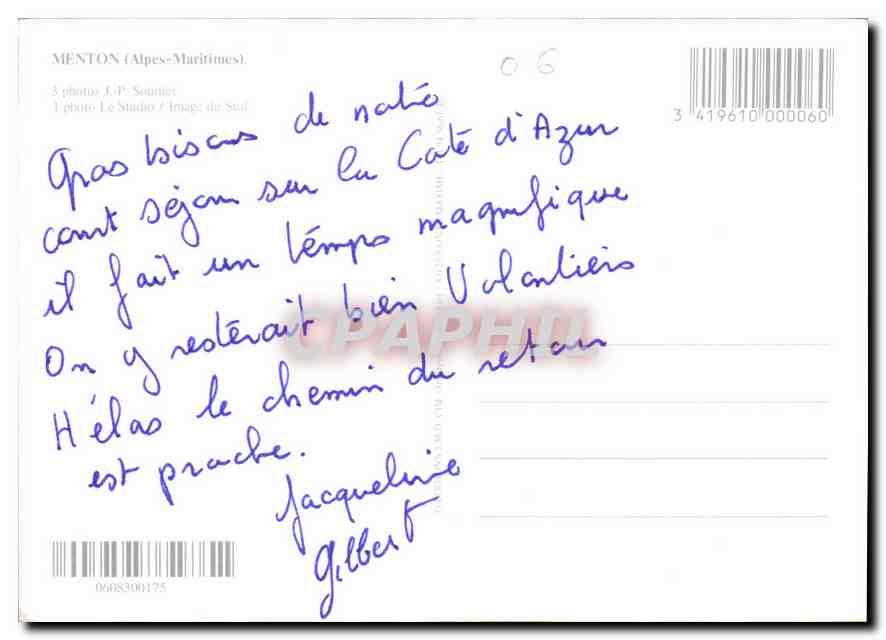 MENTON (Alpes-Maritimes)
3 photos J.-P. Soutier
1 photo Le Studio / Image du Sud
06
3 419610 000060
Gros bisous de notre
court séjour sur la Côte d'Azur
il fait un temps magnifique
On y resterait bien Volontiers
Hélas le chemin du retour
est proche.
Jacqueline
Gilbert
CPAPHIL
0608300175